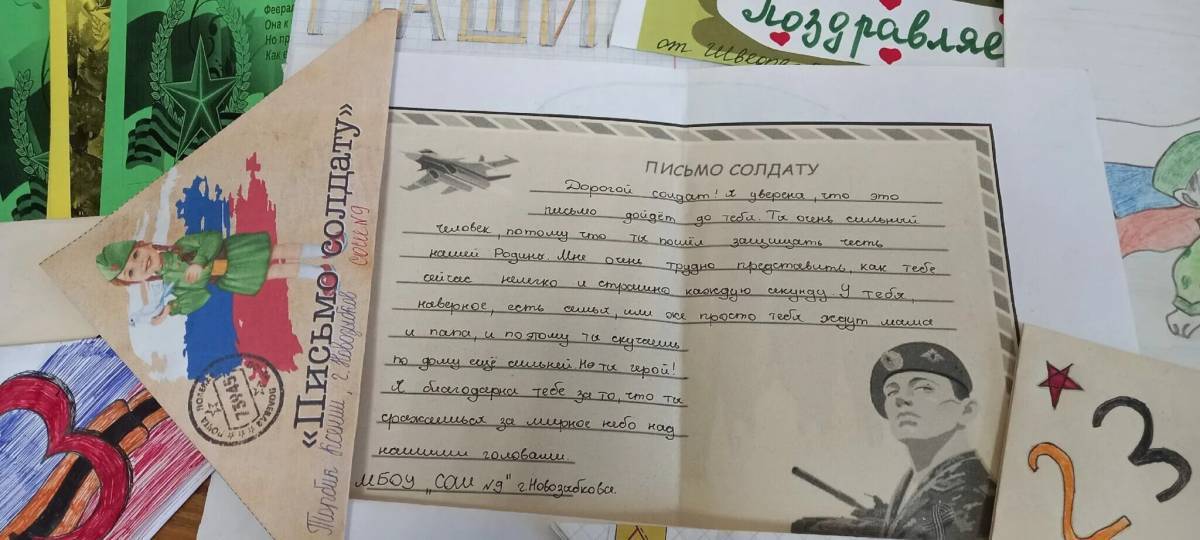 Она к
Но пр
Как е
Поздравляе
от
«Письмо солдату»
СОШ №9
ПОЛЕВАЯ ПОЧТА
75845
ПИСЬМО СОЛДАТУ
Дорогой солдат! Я уверена, что это
письмо дойдёт до тебя. Ты очень сильный
человек, потому что ты пошёл защищать честь
нашей Родины. Мне очень трудно представить, как тебе
сейчас нелегко и страшно каждую секунду. У тебя,
наверное, есть семья, или же просто тебя ждут мама
и папа, и поэтому ты скучаешь
по дому ещё сильней. Но ты герой!
Я благодарна тебе за то, что ты
сражаешься за мирное небо над
нашими головами.
МБОУ „СОШ №9" г. Новозыбкова.
23